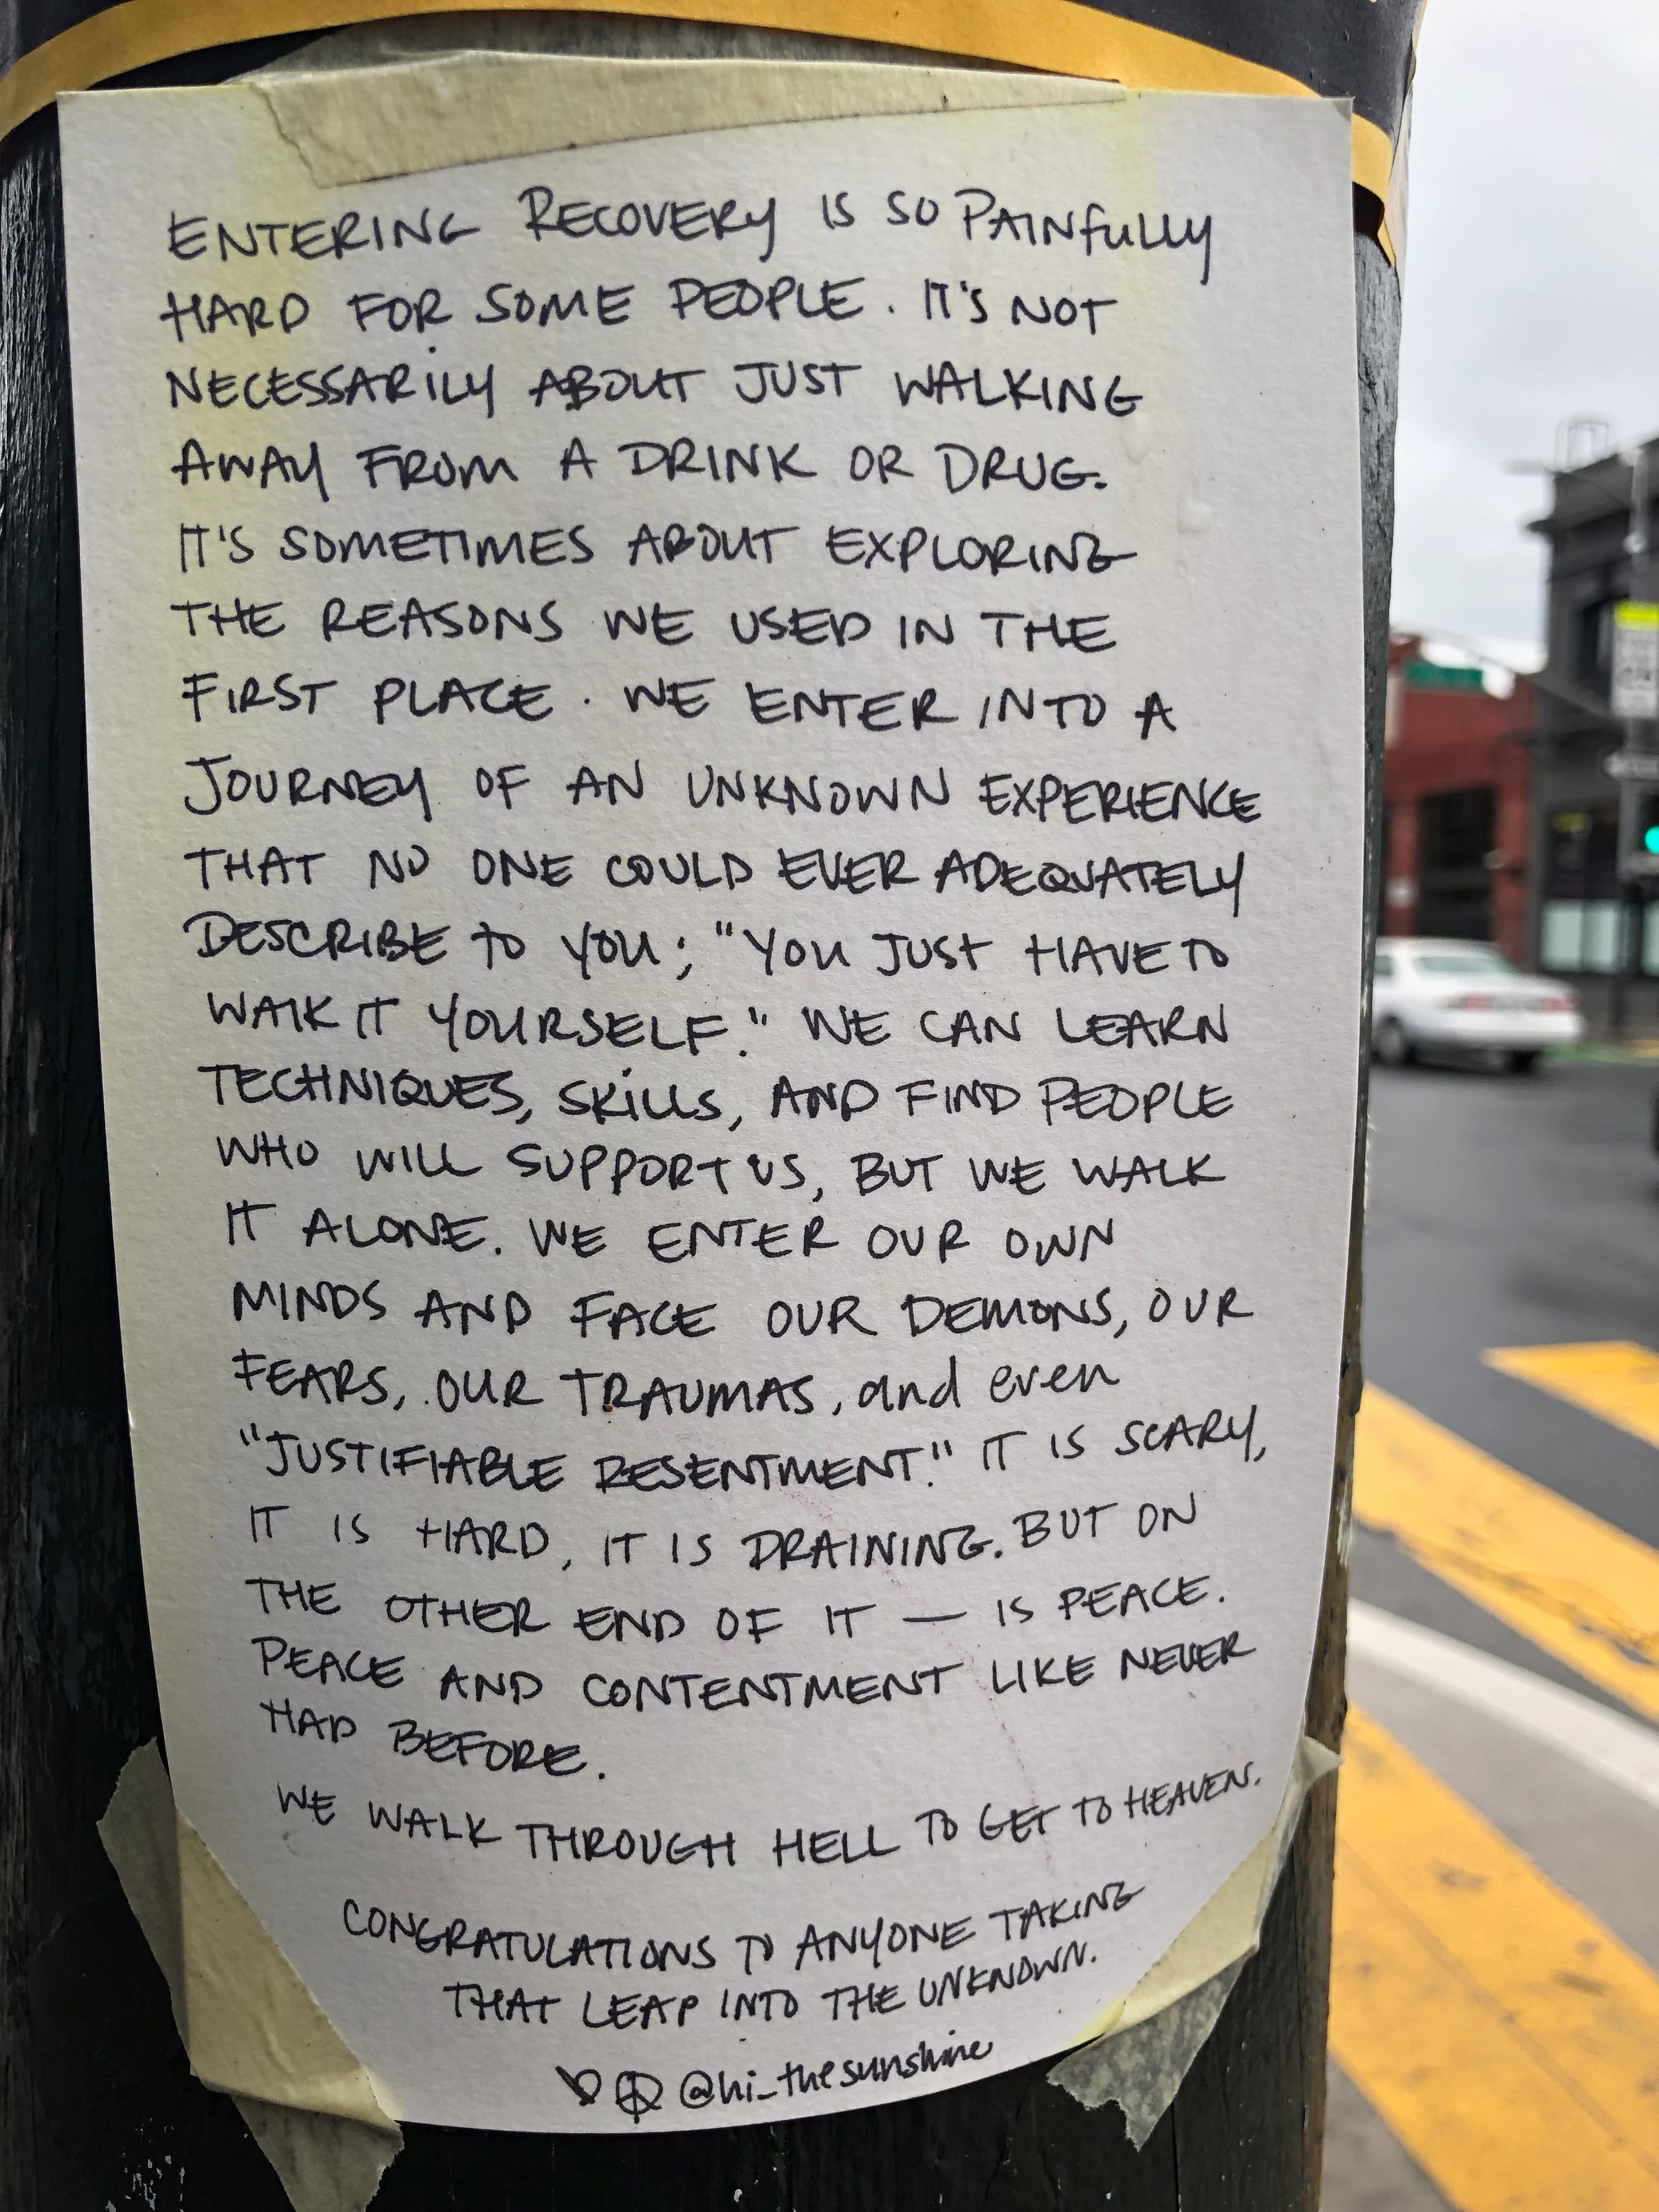 ENTERING RECOVERY IS SO PAINFULLY
HARD FOR SOME PEOPLE. IT'S NOT
NECESSARILY ABOUT JUST WALKING
AWAY FROM A DRINK OR DRUG.
IT'S SOMETIMES ABOUT EXPLORING
THE REASONS WE USED IN THE
FIRST PLACE. WE ENTER INTO A
JOURNEY OF AN UNKNOWN EXPERIENCE
THAT NO ONE COULD EVER ADEQUATELY
DESCRIBE TO YOU; "YOU JUST HAVE TO
WALK IT YOURSELF." WE CAN LEARN
TECHNIQUES, SKILLS, AND FIND PEOPLE
WHO WILL SUPPORT US, BUT WE WALK
IT ALONE. WE ENTER OUR OWN
MINDS AND FACE OUR DEMONS, OUR
FEARS, OUR TRAUMAS, and even
"JUSTIFIABLE RESENTMENT." IT IS SCARY,
IT IS HARD, IT IS DRAINING. BUT ON
THE OTHER END OF IT — IS PEACE.
PEACE AND CONTENTMENT LIKE NEVER
HAD BEFORE.
WE WALK THROUGH HELL TO GET TO HEAVEN.
CONGRATULATIONS TO ANYONE TAKING
THAT LEAP INTO THE UNKNOWN.
@hi_thesunshine